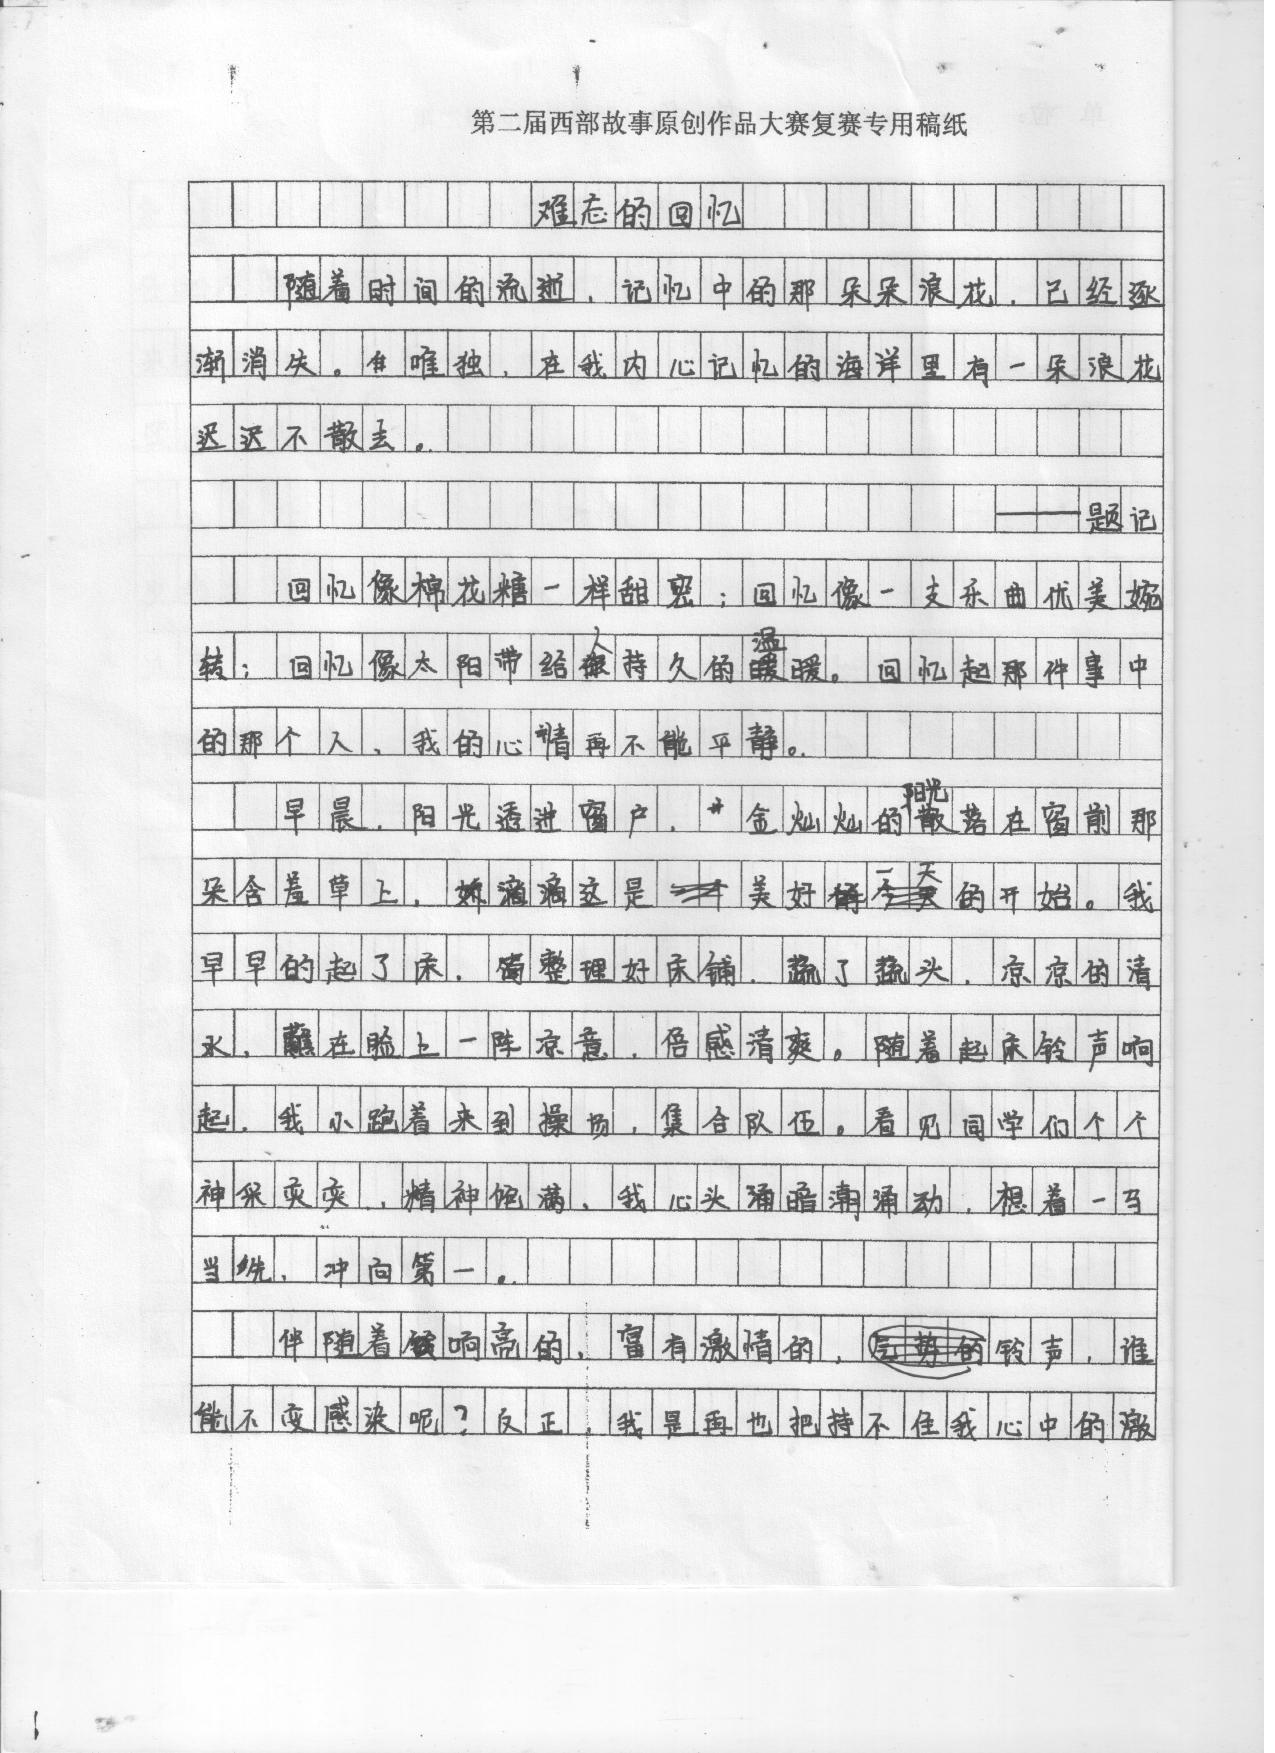 第二届西部故事原创作品大赛复赛专用稿纸
难忘的回忆
随着时间的流逝，记忆中的那朵朵浪花，已经逐
渐消失。唯独，在我内心记忆的海洋里有一朵浪花
迟迟不散去。
——题记
回忆像棉花糖一样甜蜜；回忆像一支乐曲优美婉
转；回忆像太阳带给人持久的温暖。回忆起那件事中
的那个人、我的心情再不能平静。
早晨，阳光透进窗户，金灿灿的阳光散落在窗前那
朵含羞草上，娇滴滴这是美好一天的开始。我
早早的起了床，整理好床铺，蔬了蔬头，凉凉的清
水，蘸在脸上一阵凉意，倍感清爽。随着起床铃声响
起，我小跑着来到操场，集合队伍。看见同学们个个
神采奕奕，精神饱满，我心头涌暗潮涌动，想着一马
当先，冲向第一。
伴随着响亮的，富有激情的，铃声，谁
能不变感染呢？反正，我是再也把持不住我心中的激